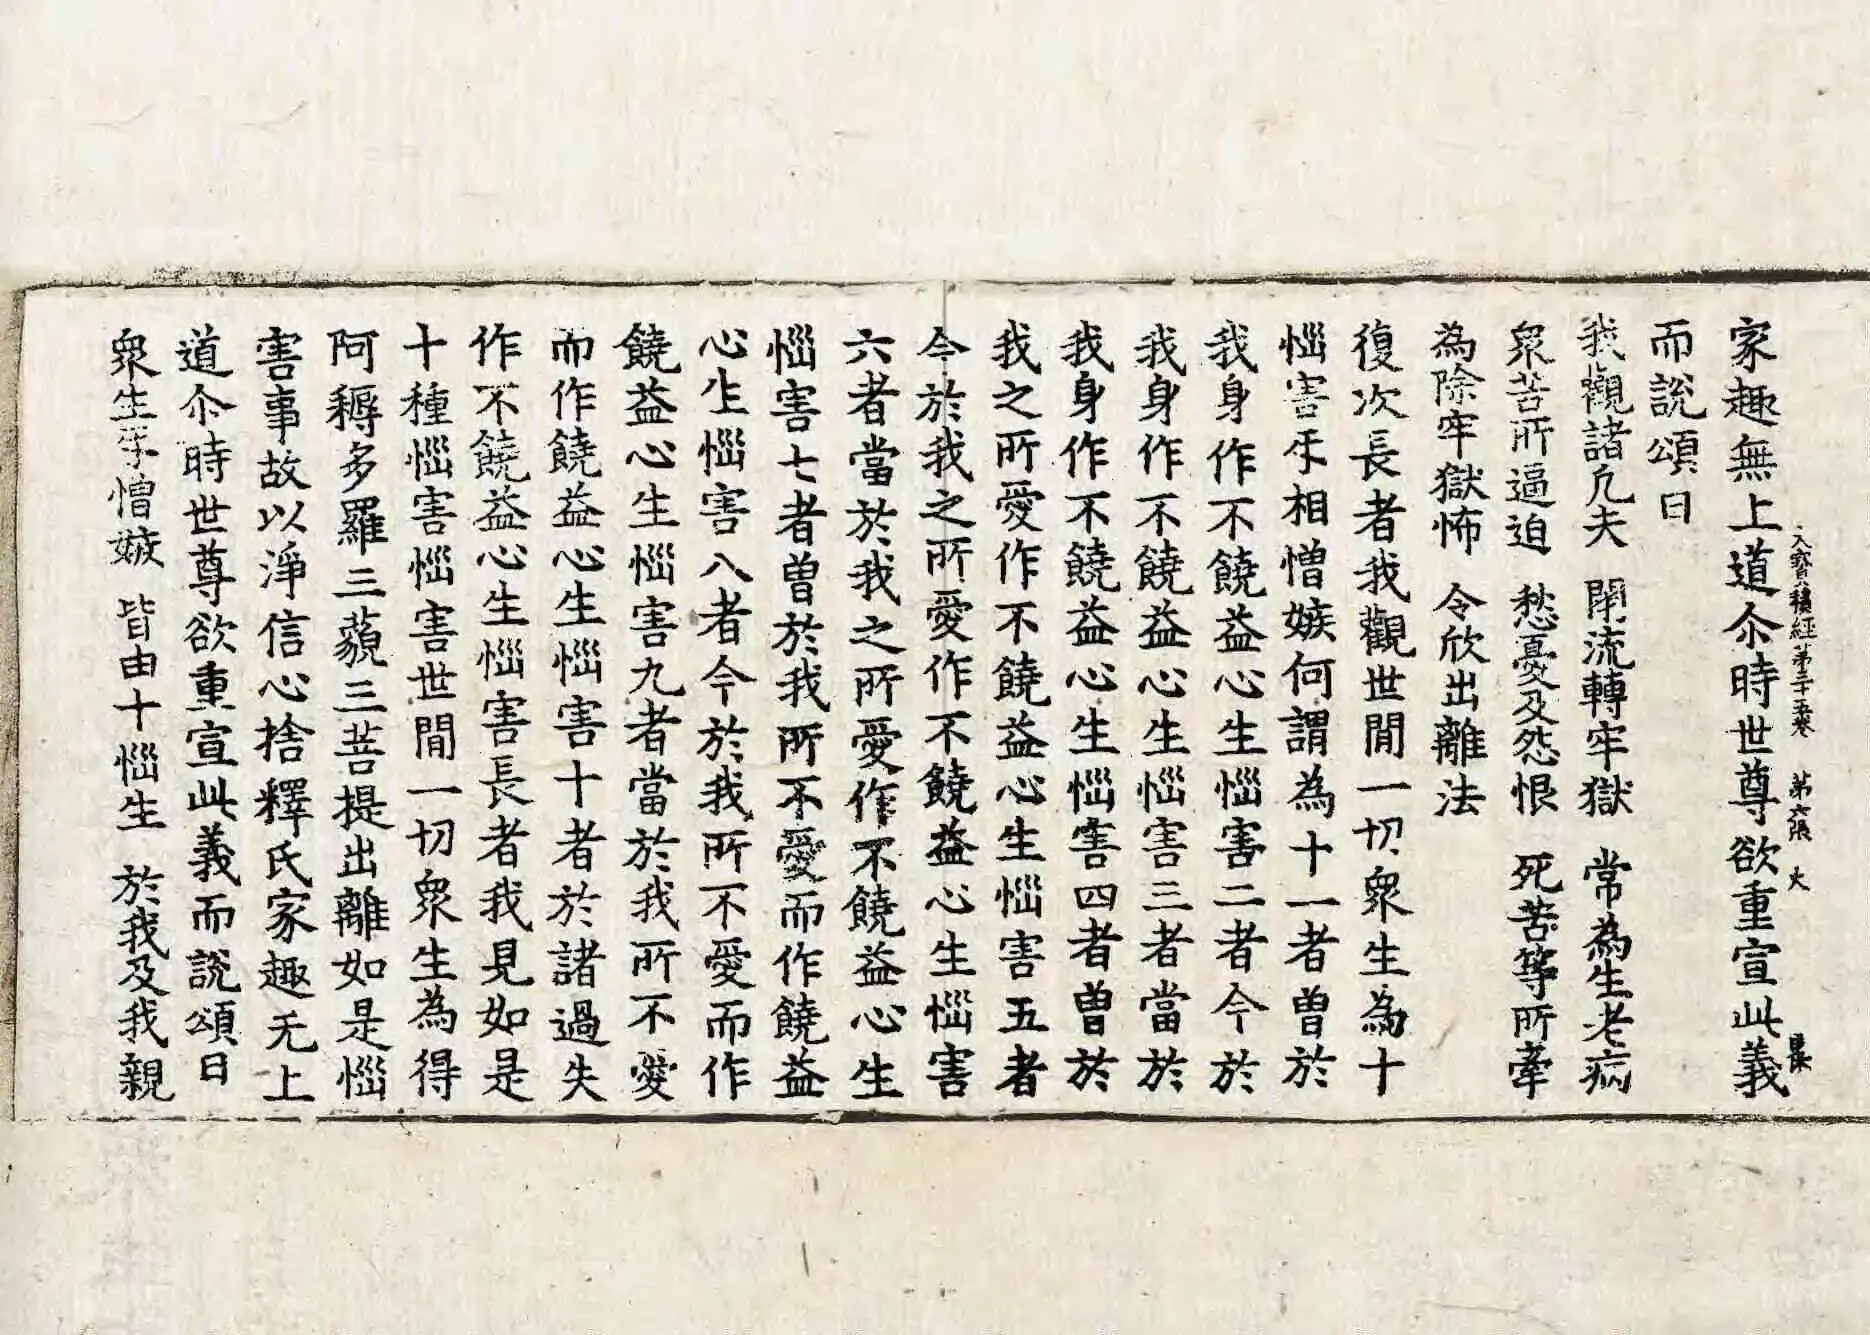 家趣無上道尒時世尊欲重宣此義
大寳積經第三十五卷 第六張 火
而說頌曰
我觀諸凡夫 閇流轉牢獄 常為生老病
衆苦所逼迫 愁憂及怨恨 死苦等所牽
為除牢獄怖 令欣出離法
復次長者我觀世間一切衆生為十
惱害乐相憎嫉何謂為十一者曽於
我身作不饒益心生惱害二者今於
我身作不饒益心生惱害三者當於
我身作不饒益心生惱害四者曽於
我之所愛作不饒益心生惱害五者
今於我之所愛作不饒益心生惱害
六者當於我之所愛作不饒益心生
惱害七者曽於我所不愛而作饒益
心生惱害八者今於我所不愛而作
饒益心生惱害九者當於我所不愛
而作饒益心生惱害十者於諸過失
作不饒益心生惱害長者我見如是
十種惱害惱害世間一切衆生為得
阿耨多羅三藐三菩提出離如是惱
害事故以淨信心捨釋氏家趣无上
道尒時世尊欲重宣此義而說頌曰
衆生乐憎嫉 皆由十惱生 於我及我親